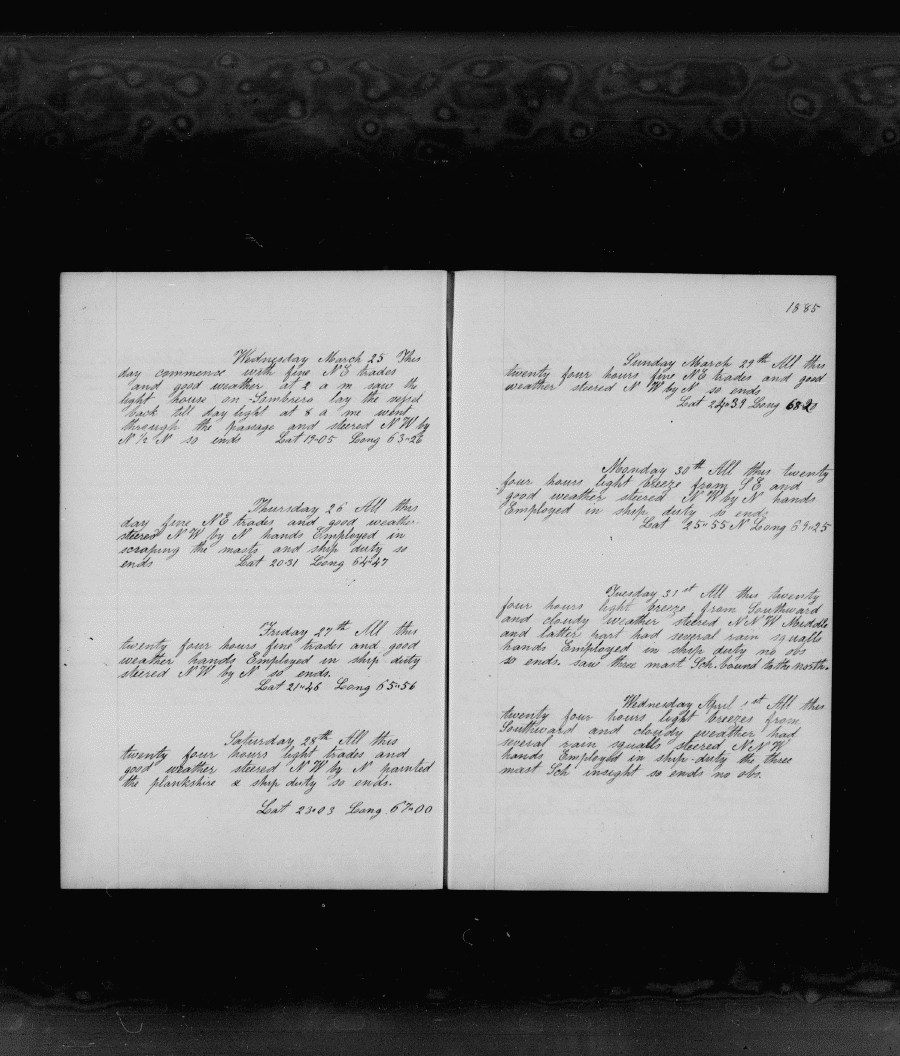 Wednesday March 25 This
day commence with fine N E trades
and good weather at 2 a m saw the
light house on Sombrero lay the vessel
back till day light at 8 a m went
through the passage and steered N W by
N ½ N so ends Lat 19-05 Long 63-26
Thursday 26 All this
day fine N E trades and good weather
steered N W by N hands Employed in
scraping the masts and ship duty so
ends Lat 20-31 Long 64-47
Friday 27th All this
twenty four hours fine trades and good
weather hands Employed in ship duty
steered N W by N so ends.
Lat 21-46 Long 65-56
Saturday 28th All this
twenty four hours light trades and
good weather steered N W by N painted
the plankshire & ship duty so ends.
Lat 23-03 Long 67-00
1885
Sunday March 29th All this
twenty four hours fine N E trades and good
weather steered N W by N so ends
Lat 24-39 Long 68-20
Monday 30th All this twenty
four hours light breeze from S E and
good weather steered N W by N hands
Employed in ship duty so ends
Lat 25-55 N Long 69-25
Tuesday 31st All this twenty
four hours light breeze from Southward
and cloudy weather steered N N W Middle
and latter part had several rain squalls
hands Employed in ship duty no obs
so ends. saw three mast Sch. bound to the north.
Wednesday April 1st All this
twenty four hours light breezes from
Southward and cloudy weather had
several rain squalls steered N N W
hands Employed in ship duty the three
mast Sch insight so ends no obs.